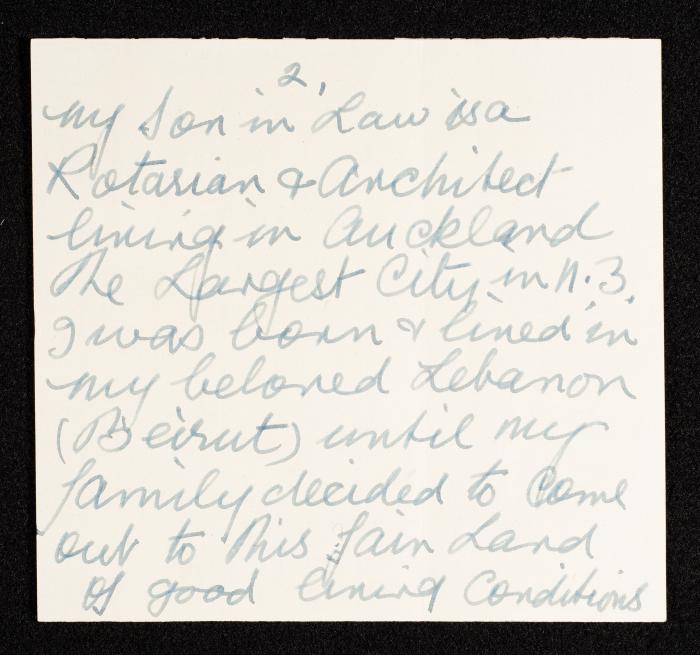 2.
my Son in Law is a
Rotarian & Architect
living in Auckland
The Largest City in N.Z.
I was born & lived in
my beloved Lebanon
(Beirut) until my
family decided to Come
out to this fair Land
of good living Conditions